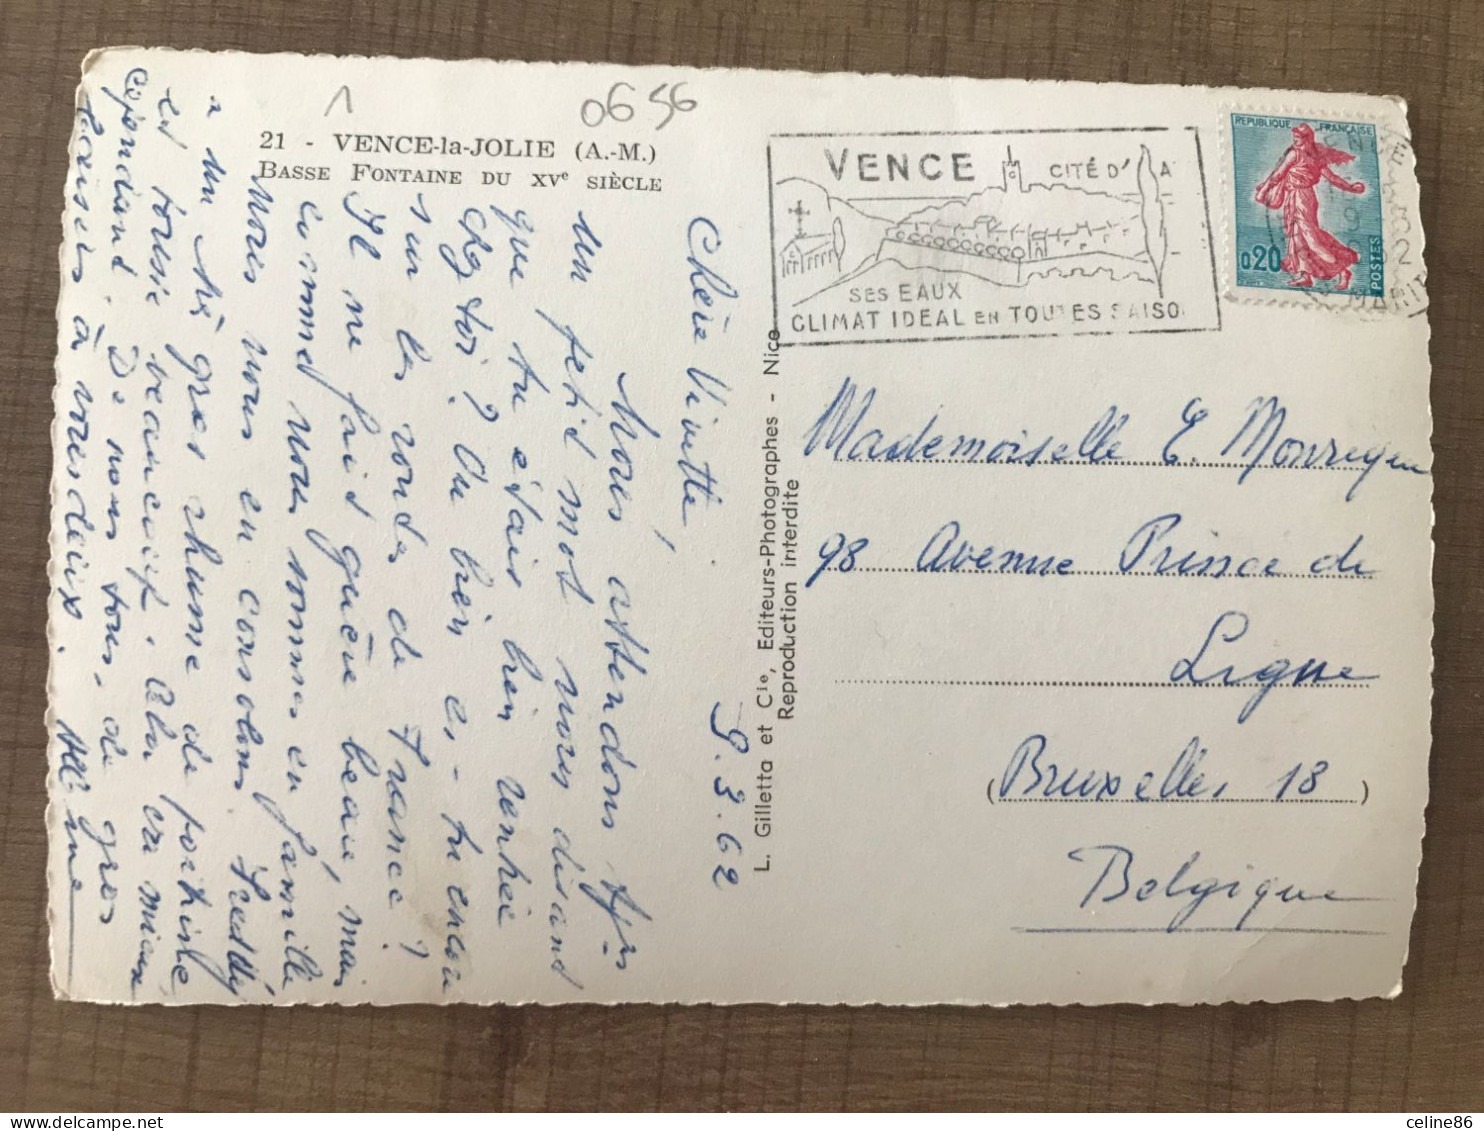 1
0656
21 - VENCE-la-JOLIE (A.-M.)
BASSE FONTAINE DU XVe SIÈCLE
VENCE CITÉ D' A
SES EAUX
CLIMAT IDEAL EN TOUTES SAISO
REPUBLIQUE FRANÇAISE
0.20
POSTES
9.3.62
Chère Vivette,
Nous attendons tjrs
un petit mot nous disant
que tu étais bien rentrée
chez toi? Ou bien es-tu encore
sur les routes de France?
Il ne fait guère beau, mais
comme nous sommes en famille
nous nous en consolons. Freddy
a un très gros rhume de poitrine
et tousse beaucoup. va mieux
cependant. De nous tous, de gros
baisers à vous deux.
L. Gilletta et Cie, Editeurs-Photographes - Nice
Reproduction interdite
Mademoiselle E.
98 Avenue Prince de
Ligne
(Bruxelles 18)
Belgique
celine86